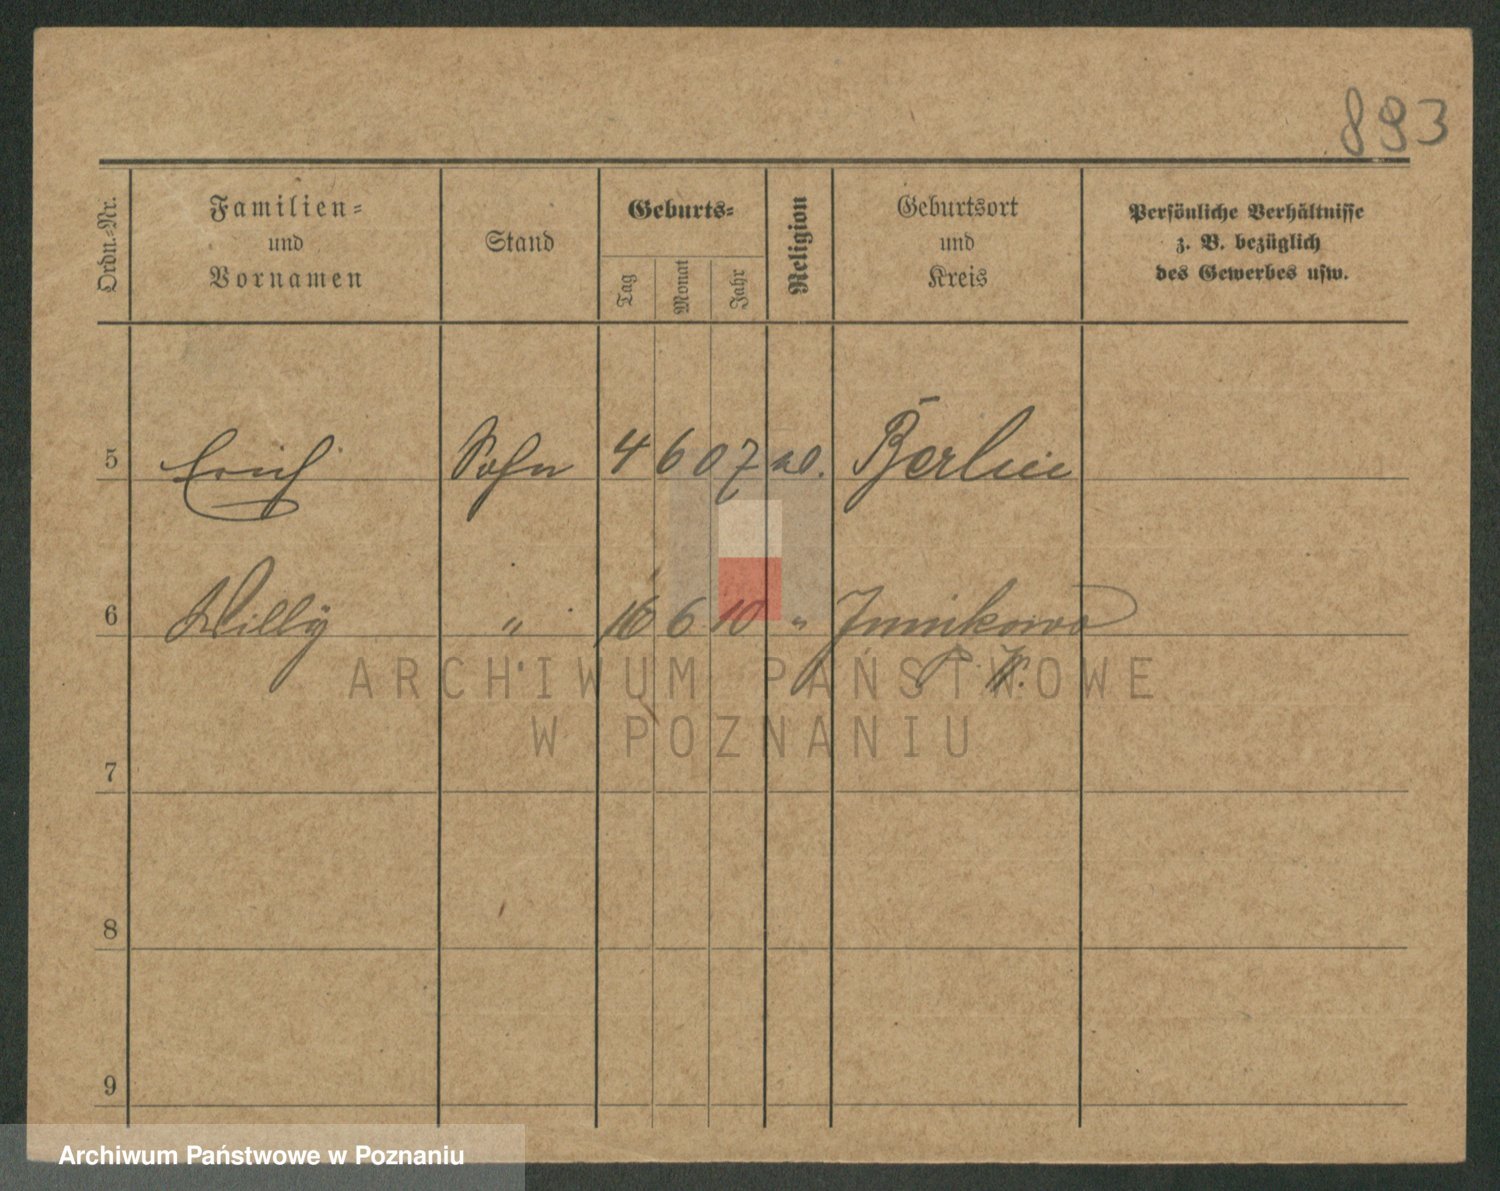 893
Ordn.-Nr.
Familien- und Vornamen
Stand
Geburts-
Tag
Monat
Jahr
Religion
Geburtsort und Kreis
Persönliche Verhältnisse z. B. bezüglich des Gewerbes usw.
5 Erich Sohn 4 6 07 Berlin
6 Willy " 16 6 10 " Junikowo
P. W.
7
8
9
ARCHIWUM PAŃSTWOWE
W POZNANIU
Archiwum Państwowe w Poznaniu